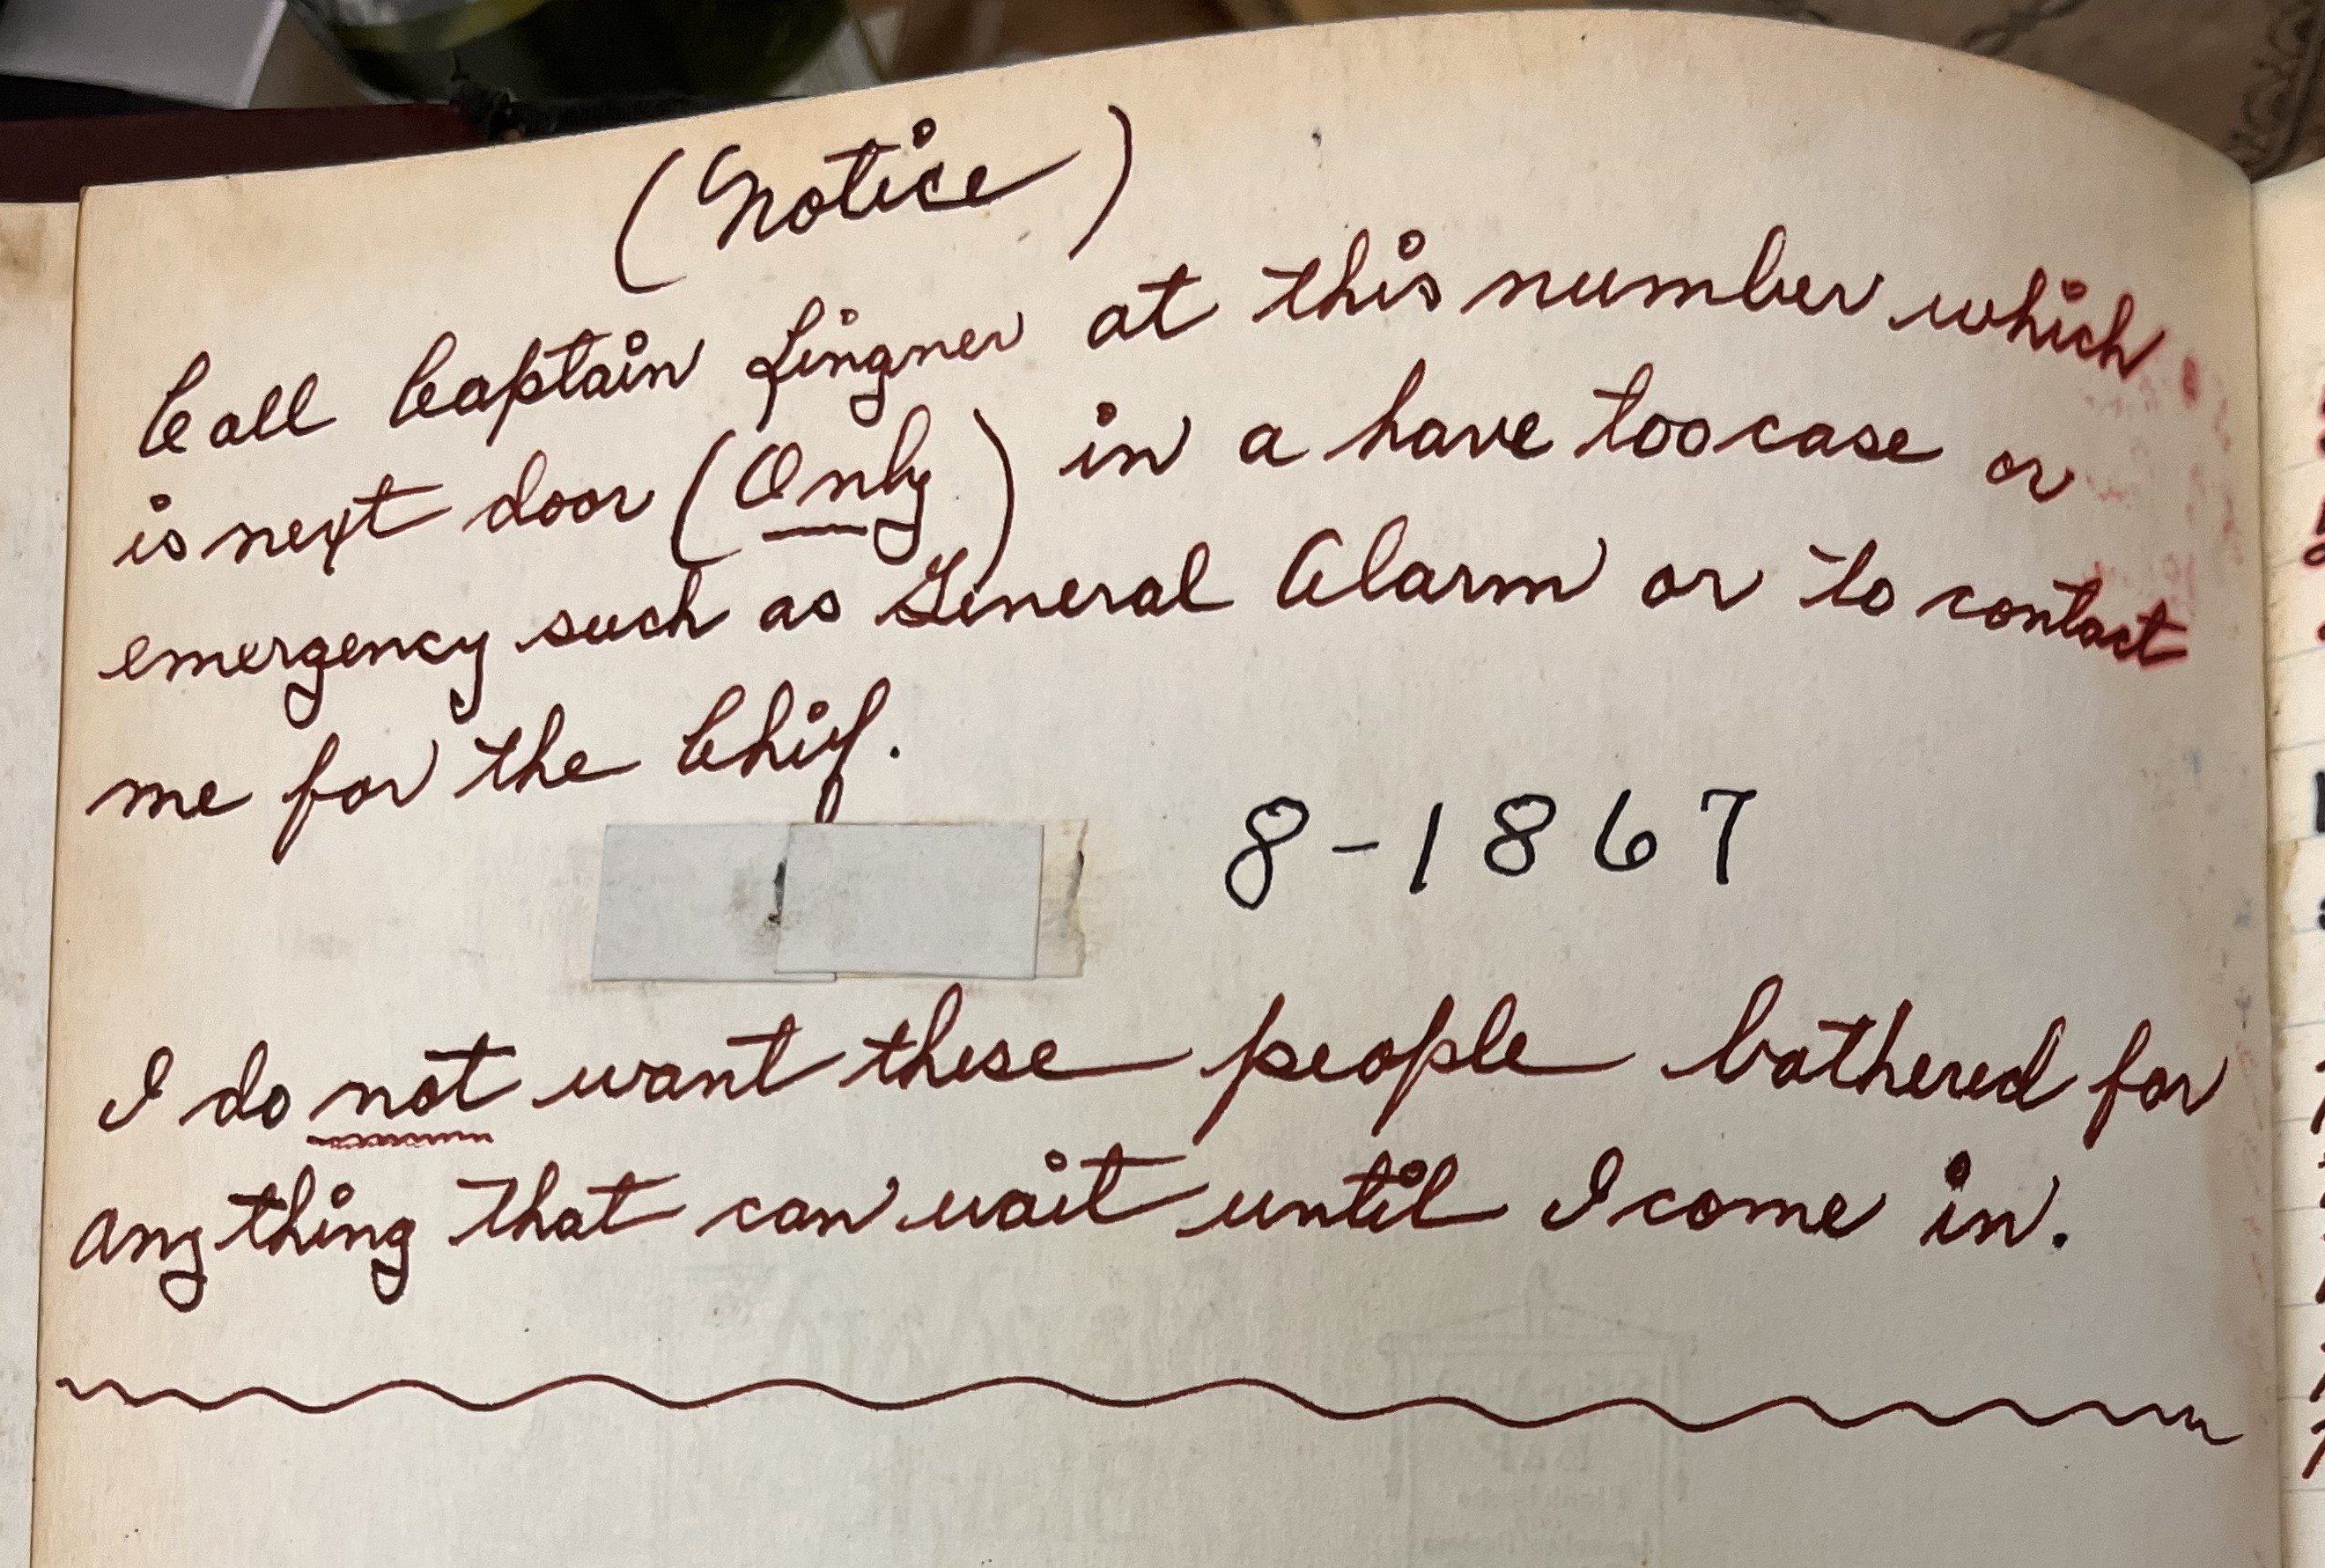 (Notice)
Call Captain Lingner at this number which
is next door (Only) in a have too case or
emergency such as General Alarm or to contact
me for the Chief.
8-1867
I do not want these people bothered for
anything that can wait until I come in.